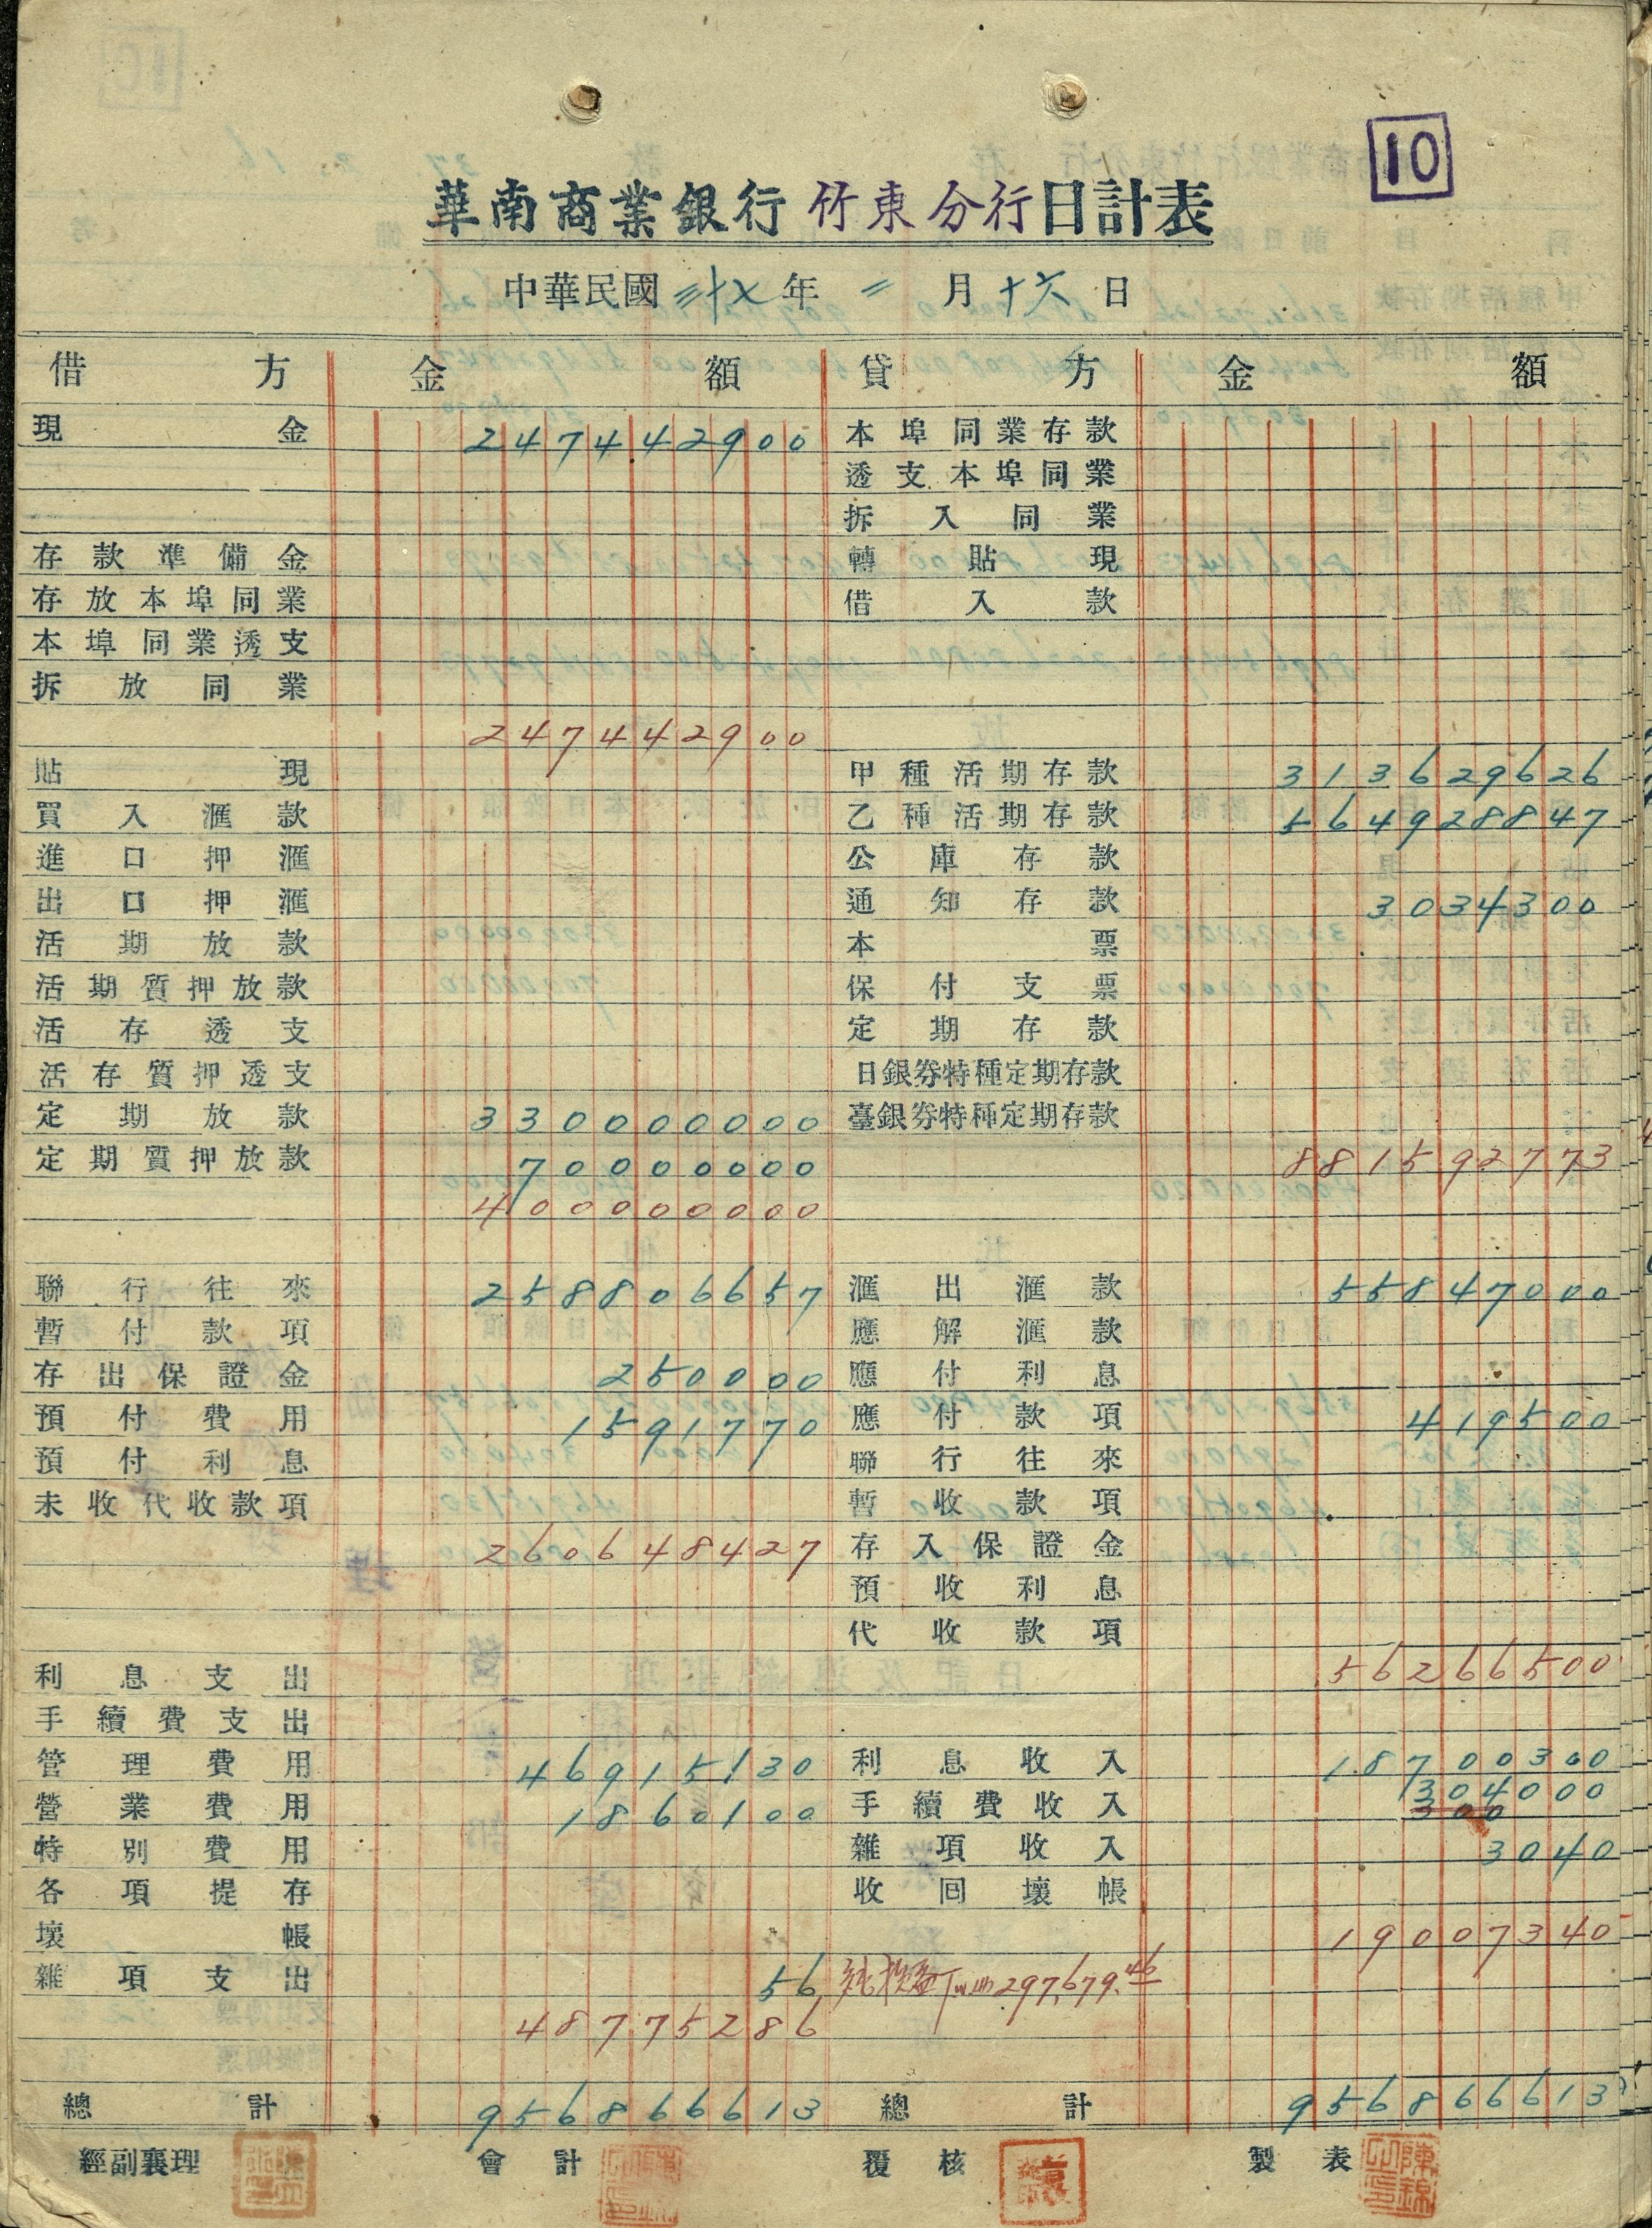 10
華南商業銀行竹東分行日計表
中華民國三十七年二月十六日
借方 金額 貸方 金額
現金 247442900 本埠同業存款
透支本埠同業
拆入同業
存款準備金 轉貼現
存放本埠同業 借入款
本埠同業透支
拆放同業
247442900
貼現 甲種活期存款 313629626
買入滙款 乙種活期存款 564928847
進口押滙 公庫存款
出口押滙 通知存款 3034300
活期放款 本票
活期質押放款 保付支票
活存透支 定期存款
活存質押透支 日銀券特種定期存款
定期放款 330000000 臺銀券特種定期存款
定期質押放款 70000000 881592773
400000000
聯行往來 258806657 滙出滙款 55847000
暫付款項 應解滙款
存出保證金 250000 應付利息
預付費用 1591770 應付款項 419500
預付利息 聯行往來
未收代收款項 暫收款項
260648427 存入保證金
預收利息
代收款項
利息支出 56266500
手續費支出
管理費用 46915130 利息收入 18700300
營業費用 1860100 手續費收入 304000
300
特別費用 雜項收入 3040
各項提存 收回壞帳
壞帳 19007340
雜項支出 56 純損益 297,679.46
48775286
總計 956866613 總計 956866613
經副襄理 會計 覆核 製表